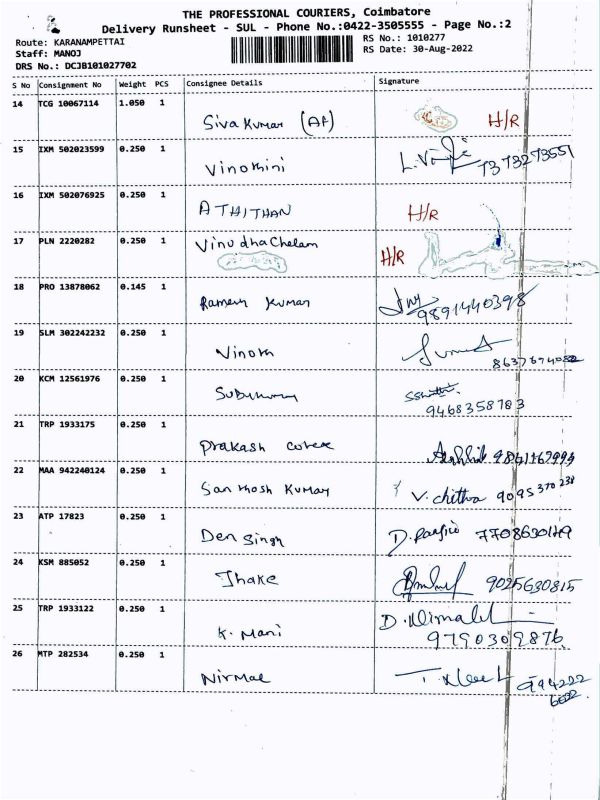 THE PROFESSIONAL COURIERS, Coimbatore
Delivery Runsheet - SUL - Phone No.:0422-3505555 - Page No.:2
Route: KARANAMPETTAI
Staff: MANOJ
DRS No.: DCJB101027702
RS No.: 1010277
RS Date: 30-Aug-2022
S No Consignment No Weight PCS Consignee Details Signature
14 TCG 10067114 1.050 1 Siva Kumar (AF) H/R
15 IXM 502023599 0.250 1 Vinothini 7373273551
16 IXM 502076925 0.250 1 ATHITHAN H/R
17 PLN 2220282 0.250 1 Vinudhachelam H/R
18 PRO 13878062 0.145 1 Ramesh Kumar 9891440398
19 SLM 302242232 0.250 1 Vinoth
20 KCM 12561976 0.250 1 9468358783
21 TRP 1933175 0.250 1 Prakash
22 MAA 942240124 0.250 1 Santhosh Kumar V. chithra 9095370238
23 ATP 17823 0.250 1 Den Singh D.
24 KSM 885052 0.250 1 9025630815
25 TRP 1933122 0.250 1 K. Mani D. 9790309876
26 MTP 282534 0.250 1 Nirmal